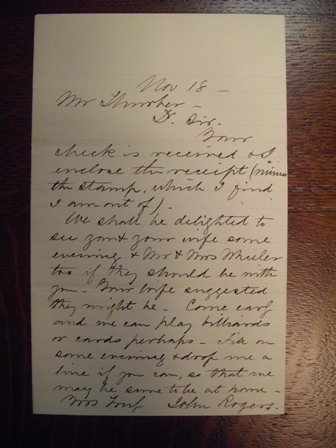 Nov 18 -
Mr Thurber -
D. Sir.
Your
check is received & I
enclose the receipt (minus
the stamp, which I find
I am out of).
We shall be delighted to
see you & your wife some
evening & Mr & Mrs Wheeler
too if they should be with
you - Your wife suggested
they might be - Come early
and we can play billiards
or cards perhaps - Fix on
some evening & drop me a
line if you can, so that we
may be sure to be at home -
Yrs truly John Rogers.